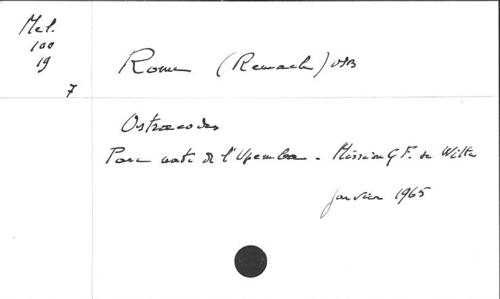 Mel.
100
19
7
Rome (Remacle) OSB
Ostracodes
Parc nat. de l'Upemba - Mission G.F. de Witte
janvier 1965